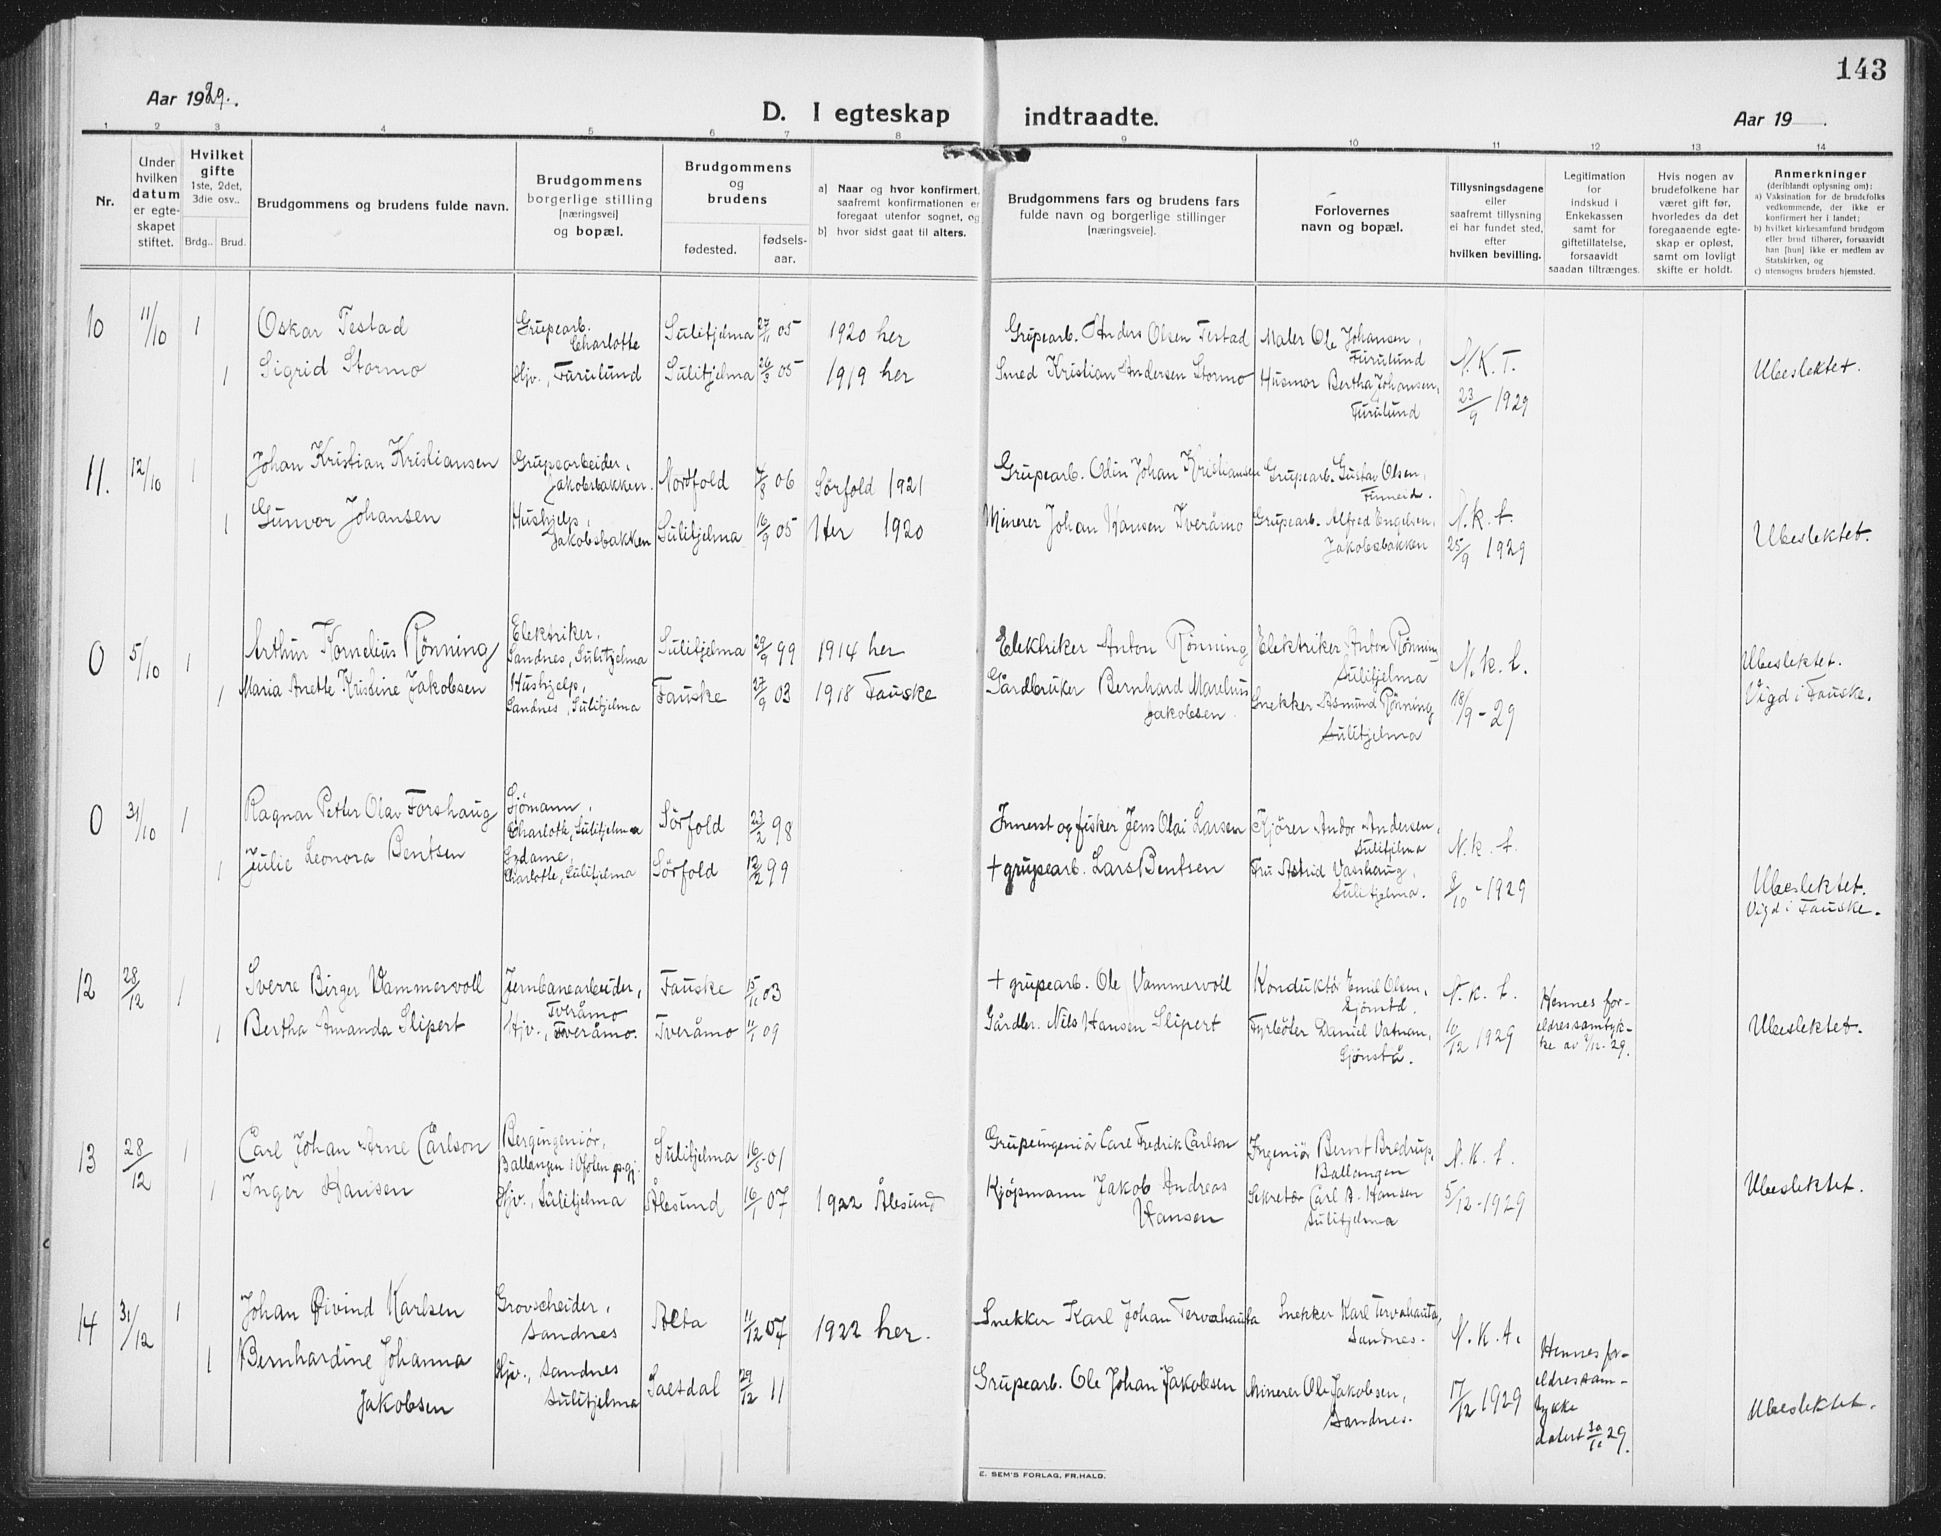 143
Aar 1929.
D. I egteskap indtraadte.
Aar 19 .
1 2 3 4 5 6 7 8 9 10 11 12 13 14
Nr.
Under hvilken datum er egteskapet stiftet.
Hvilket gifte
1ste, 2det, 3die osv..
Brdg.. Brud.
Brudgommens og brudens fulde navn.
Brudgommens borgerlige stilling [næringsvei] og bopæl.
Brudgommens og brudens
fødested.
fødselsaar.
a) Naar og hvor konfirmert, saafremt konfirmationen er foregaat utenfor sognet, og
b) hvor sidst gaat til alters.
Brudgommens fars og brudens fars fulde navn og borgerlige stillinger [næringsveie].
Forlovernes navn og bopæl.
Tillysningsdagene eller saafremt tillysning ei har fundet sted, efter hvilken bevilling.
Legitimation for indskud i Enkekassen samt for giftetillatelse, forsaavidt saadan tiltrænges.
Hvis nogen av brudefolkene har været gift før, hvorledes da det foregaaende egteskap er opløst, samt om lovligt skifte er holdt.
Anmerkninger
(deriblandt oplysning om):
a) Vaksination for de brudefolks vedkommende, der ikke er konfirmert her i landet;
b) hvilket kirkesamfund brudgom eller brud tilhører, forsaavidt han [hun] ikke er medlem av Statskirken, og
c) utensogns bruders hjemsted.
10 11/10 1 Oskar Testad Grupearb. Charlotte Sulitjelma 27/11 05 1920 her Grupearb. Anders Olsen Testad Maler Ole Johansen, Furulund
1 Sigrid Stormo Hjv., Furulund Sulitjelma 26/3 05 1919 her Smed Kristian Andersen Stormo Husmor Bertha Johansen, Furulund N.K.T. 23/9 1929 Ubeslektet.
11. 12/10 1 Johan Kristian Kristiansen Grupearbeider, Jakobsbakken. Nordfold 7/8 06 Sørfold 1921 Grupearb. Odin Johan Kristiansen Grupearb. Gustav Olsen, Finneid.
1 Gunvor Johansen Hushjelp, Jakobsbakken Sulitjelma 16/9 05 Her 1920 Minerer Johan Hansen Tveråmo Grupearb. Alfred Engelsen, Jakobsbakken N.k.t. 25/9 1929 Ubeslektet.
0 5/10 1 Arthur Kornelius Rönning Elektriker, Sandnes, Sulitjelma Sulitjelma 29/9 99 1914 her Elektriker Anton Rönning Elektriker Anton Rönning Sulitjelma
1 Maria Anette Kristine Jakobsen Hushjelp, Sandnes, Sulitjelma Fauske 27/9 03 1918 Fauske Gårdbruker Bernhard Marelius Jakobsen Snekker Asmund Rönning Sulitjelma N.k.t. 18/9 - 29 Ubeslektet. Vigd i Fauske.
0 31/10 1 Ragnar Petter Olav Forshaug Sjömann, Charlotte, Sulitjelma Sörfold 23/2 98 Innerst og fisker Jens Olai Larsen Kjörer Andor Andersen, Sulitjelma
1 Julie Leonora Bentsen Sydame, Charlotte, Sulitjelma Sörfold 12/2 99 + grupearb. Lars Bentsen Fru Astrid Vasshaug, Sulitjelma. N.k.t. 8/10 - 1929 Ubeslektet. Vigd i Fauske.
12 28/12 1 Sverre Birger Vammervoll Jernbanearbeider, Tveråmo Fauske 15/11 03 + grupearb. Ole Vammervoll Konduktör Emil Olsen, Sjönstå.
1 Bertha Amanda Slipert Hjv., Tveråmo. Tveråmo 11/1 09 Gårdbr. Nils Hansen Slipert Fyrböter Daniel Vatnan, Sjönstå. N.k.t. 10/12 1929 Hennes foreldres samtykke av 7/12-29. Ubeslektet.
13 28/12 1 Carl Johan Arne Carlson Bergingeniör, Ballangen i Ofoten Sulitjelma 16/5-01 Grupeingeniör Carl Fredrik Carlson Ingeniör Bernt Bredrup, Ballangen
1 Inger Hansen Hjv., Sulitjelma Ålesund 16/1 07 1922 Ålesund Kjöpmann Jakob Andreas Hansen Sekretær Carl B. Hansen Sulitjelma N.K.t. 5/12-1929 Ubeslektet.
14 31/12 1 Johan Öivind Karlsen Grovscheider, Sandnes Alta 11/12 07 1922 her. Snekker Karl Johan Tervahauta Snekker Karl Tervahauta, Sandnes.
1 Bernhardine Johanna Jakobsen Hjv., Sandnes Sulitjelma Saltdal 29/12 11 Grupearb. Ole Johan Jakobsen Minerer Ole Jakobsen, Sandnes. N.K.t. 17/12 1929 Hennes foreldres samtykke datert 29. Ubeslektet.
E. SEM'S FORLAG, FR.HALD.